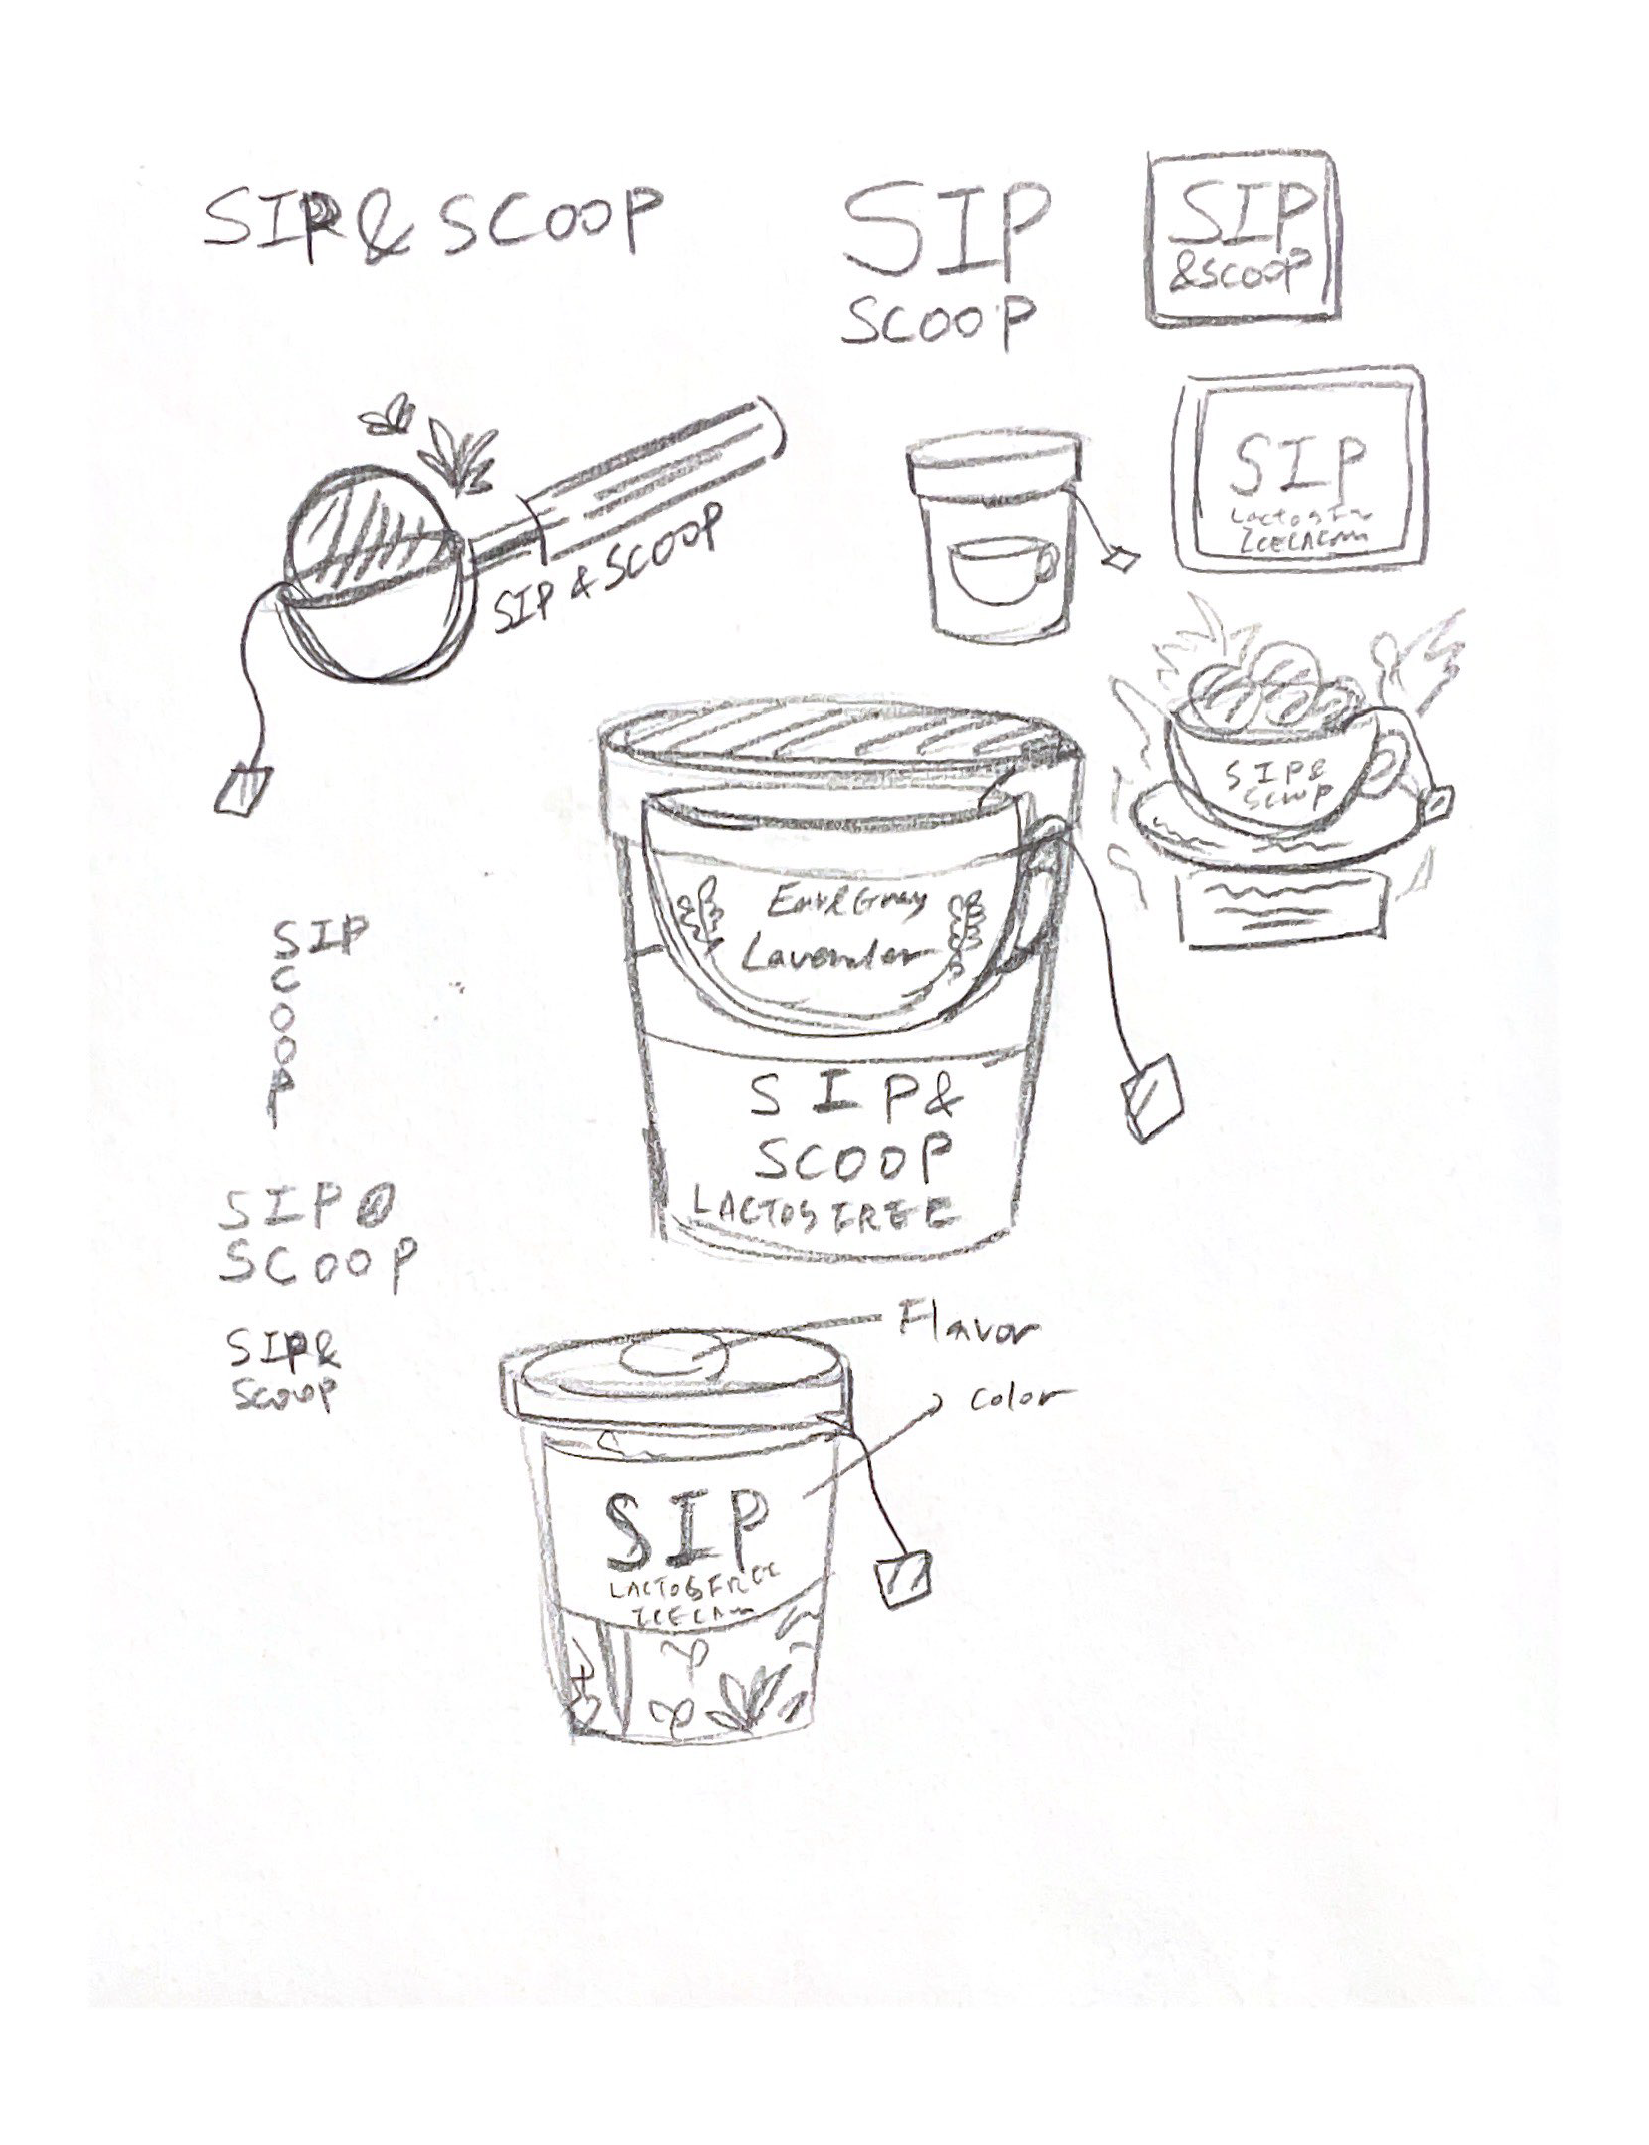 SIP & SCOOP
SIP
SCOOP
SIP
&SCOOP
SIP
SIP & SCOOP
SIP&
SCOOP
Earl Gray
Lavender
SIP
C
O
O
P
SIP&
SCOOP
LACTOSFREE
SIP
SCOOP
SIP&
SCOOP
Flavor
Color
SIP
LACTOSFREE